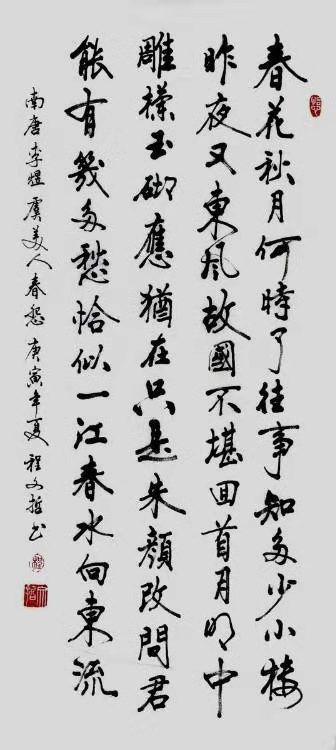 春花秋月何時了往事知多少小樓
昨夜又東風故國不堪回首月明中
雕欄玉砌應猶在只是朱顏改問君
能有幾多愁恰似一江春水向東流
南唐李煜虞美人春怨庚寅年夏程文哲书